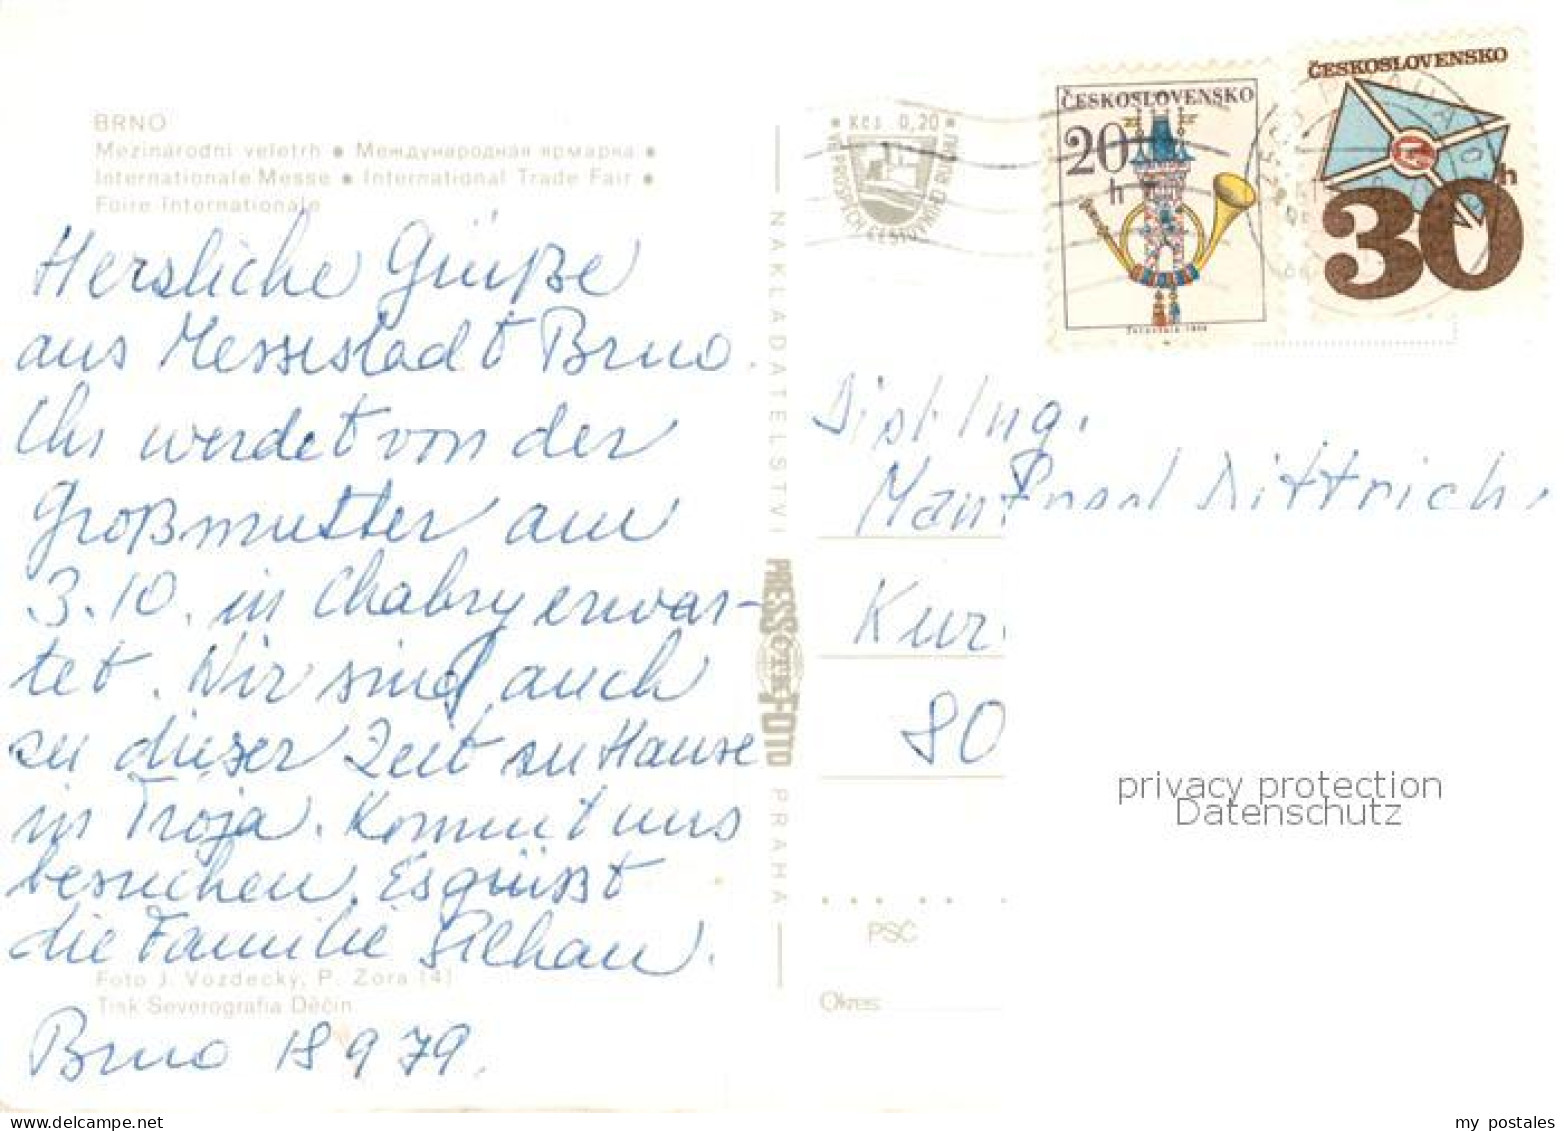 BRNO
Mezinárodní veletrh • Международная ярмарка •
Internationale Messe • International Trade Fair •
Foire Internationale
Herzliche Grüße
aus Messestadt Brno.
Ihr werdet von der
Großmutter am
3.10. in Chabry erwar-
tet. Wir sind auch
zu dieser Zeit zu Hause
in Troja. Kommt uns
besuchen. Es grüßt
die Familie
Foto J. Vozdecký, P. Zora (4)
Tisk Severografia Děčín
Brno 18 9 79.
NAKLADATELSTVÍ
PRESSFOTO
PRAHA
Kčs. 0,20
ČESKOSLOVENSKO
20
h
ČESKOSLOVENSKO
30
h
Dipl Ing.
Man Dittrich
Kur
80
PSČ
Okres
privacy protection
Datenschutz
my postales